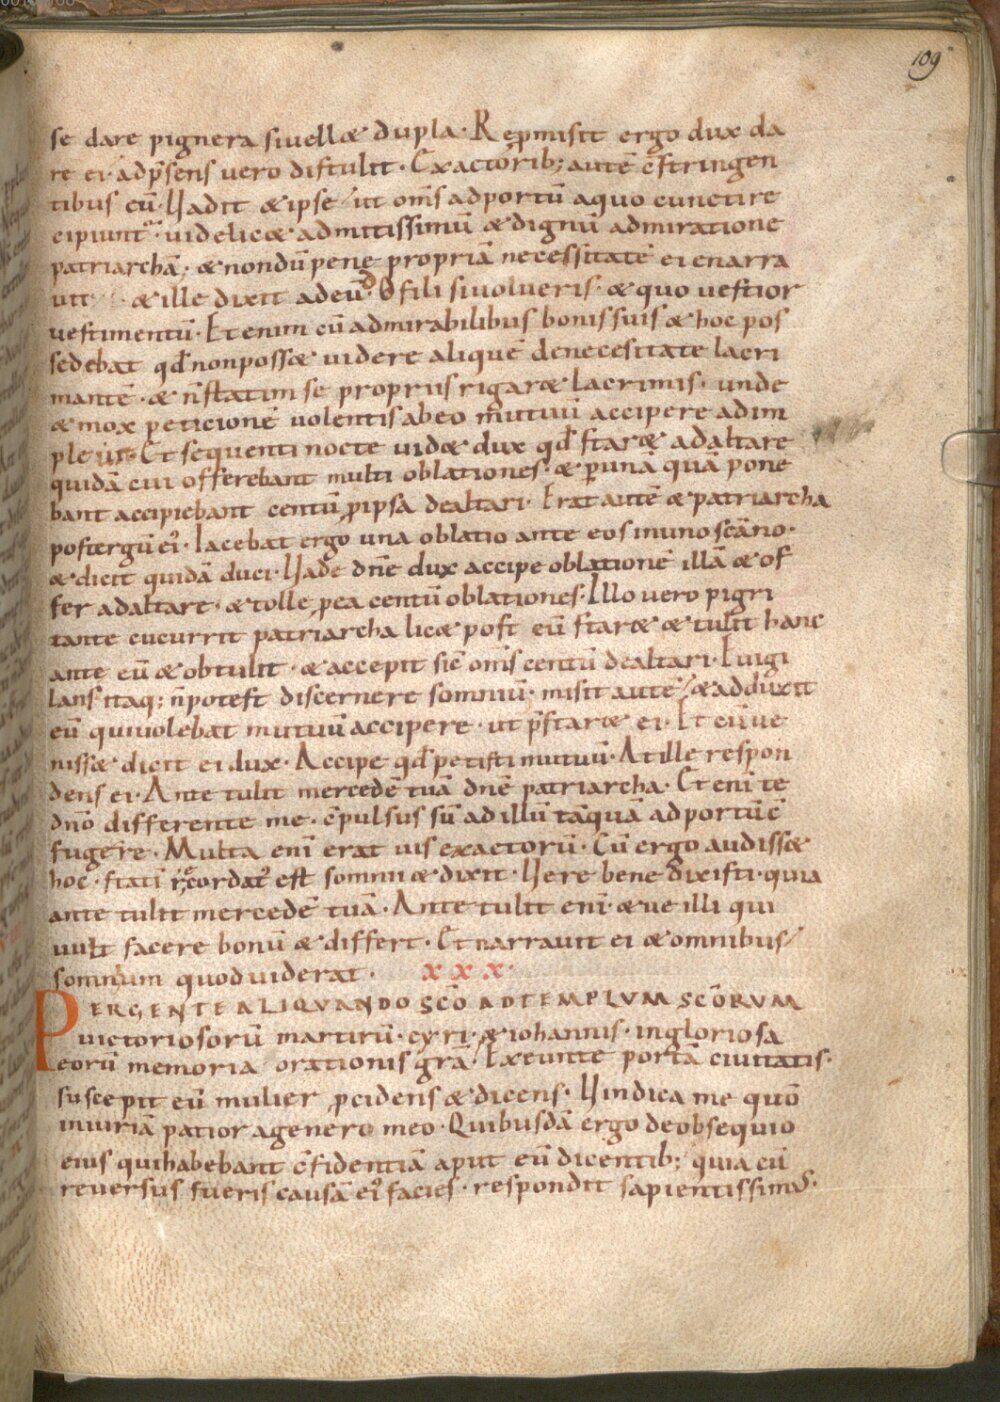 109
se dare pignera si vellæ dupla. Repmisit ergo dux da
re ei. ad p̄sens vero distulit. Exactorib; autē c̄stringen
tibus eū. Vadit & ipse ut om̄s ad portū a quo cuncti re
cipiunt. videlic& admitissimū & dignū admiratione
patriarchā. & nondū pene propriā necessitatē ei enarra
vit & ille dixit ad eū. O fili si volueris. & quo vestior
vestimentū. Et enim cū admirabilibus bonis suis & hoc pos
sedebat qđ non poss& videre aliquē de necessitate lacri
mantē. & n̄ statim se propriis rigar& lacrimis. unde
& mox peticionē volentis ab eo mutuū accipere adim
plevit. Et sequenti nocte vid& dux qđ star& ad altare
quidā cui offerebant multi oblationes. & p unā quā pone
bant accipiebant centū p ipsa de altari. Erat autē & patriarcha
post ergū ei'. Iacebat ergo una oblatio ante eos in uno scāno.
& dicit quidā duci. Vade dn̄e dux accipe oblationē illā & of
fer ad altare. & tolle p ea centū oblationes. Illo vero pigri
tante cucurrit patriarcha lic& post eū star& & tulit hanc
ante eū & obtulit. & accepit sic om̄s centū de altari. Evigi
lans itaq; n̄ potest discernere somniū. misit autē & adduxit
eū qui volebat mutuū accipere. ut p̄star& ei. Et cū ve
niss& dicit ei dux. Accipe qđ petisti mutuū. At ille respon
dens ei. Ante tulit mercedē tuā dn̄e patriarcha. Et eni te
dn̄o differente me. c̄pulsus sū ad illū tāquā ad portū c̄
fugere. Multa enī erat vis exactorū. Cū ergo audiss&
hoc. statī recordat' est somnii & dixit. Vere bene dixisti. quia
ante tulit mercedē tuā. Ante tulit enī. & ve illi qui
vult facere bonū & differt. Et narravit ei & omnibus
somnium quod viderat. xxx.
PERGENTE ALIQVANDO SC̄O AD TEMPLVM SC̄ORVM
victoriosorū martirū. cyri. & iohannis. in gloriosa
eorū memoria orationis grā. Exeunte portā civitatis.
suscepit eū mulier p cidens & dicens. Vindica me quō
iniuriā patior a genero meo. Quibusdā ergo de obsequio
eius qui habebant c̄fidentiā aput eū dicentib; quia cū
reversus fueris causā ei' facies. respondit sapientissim'.